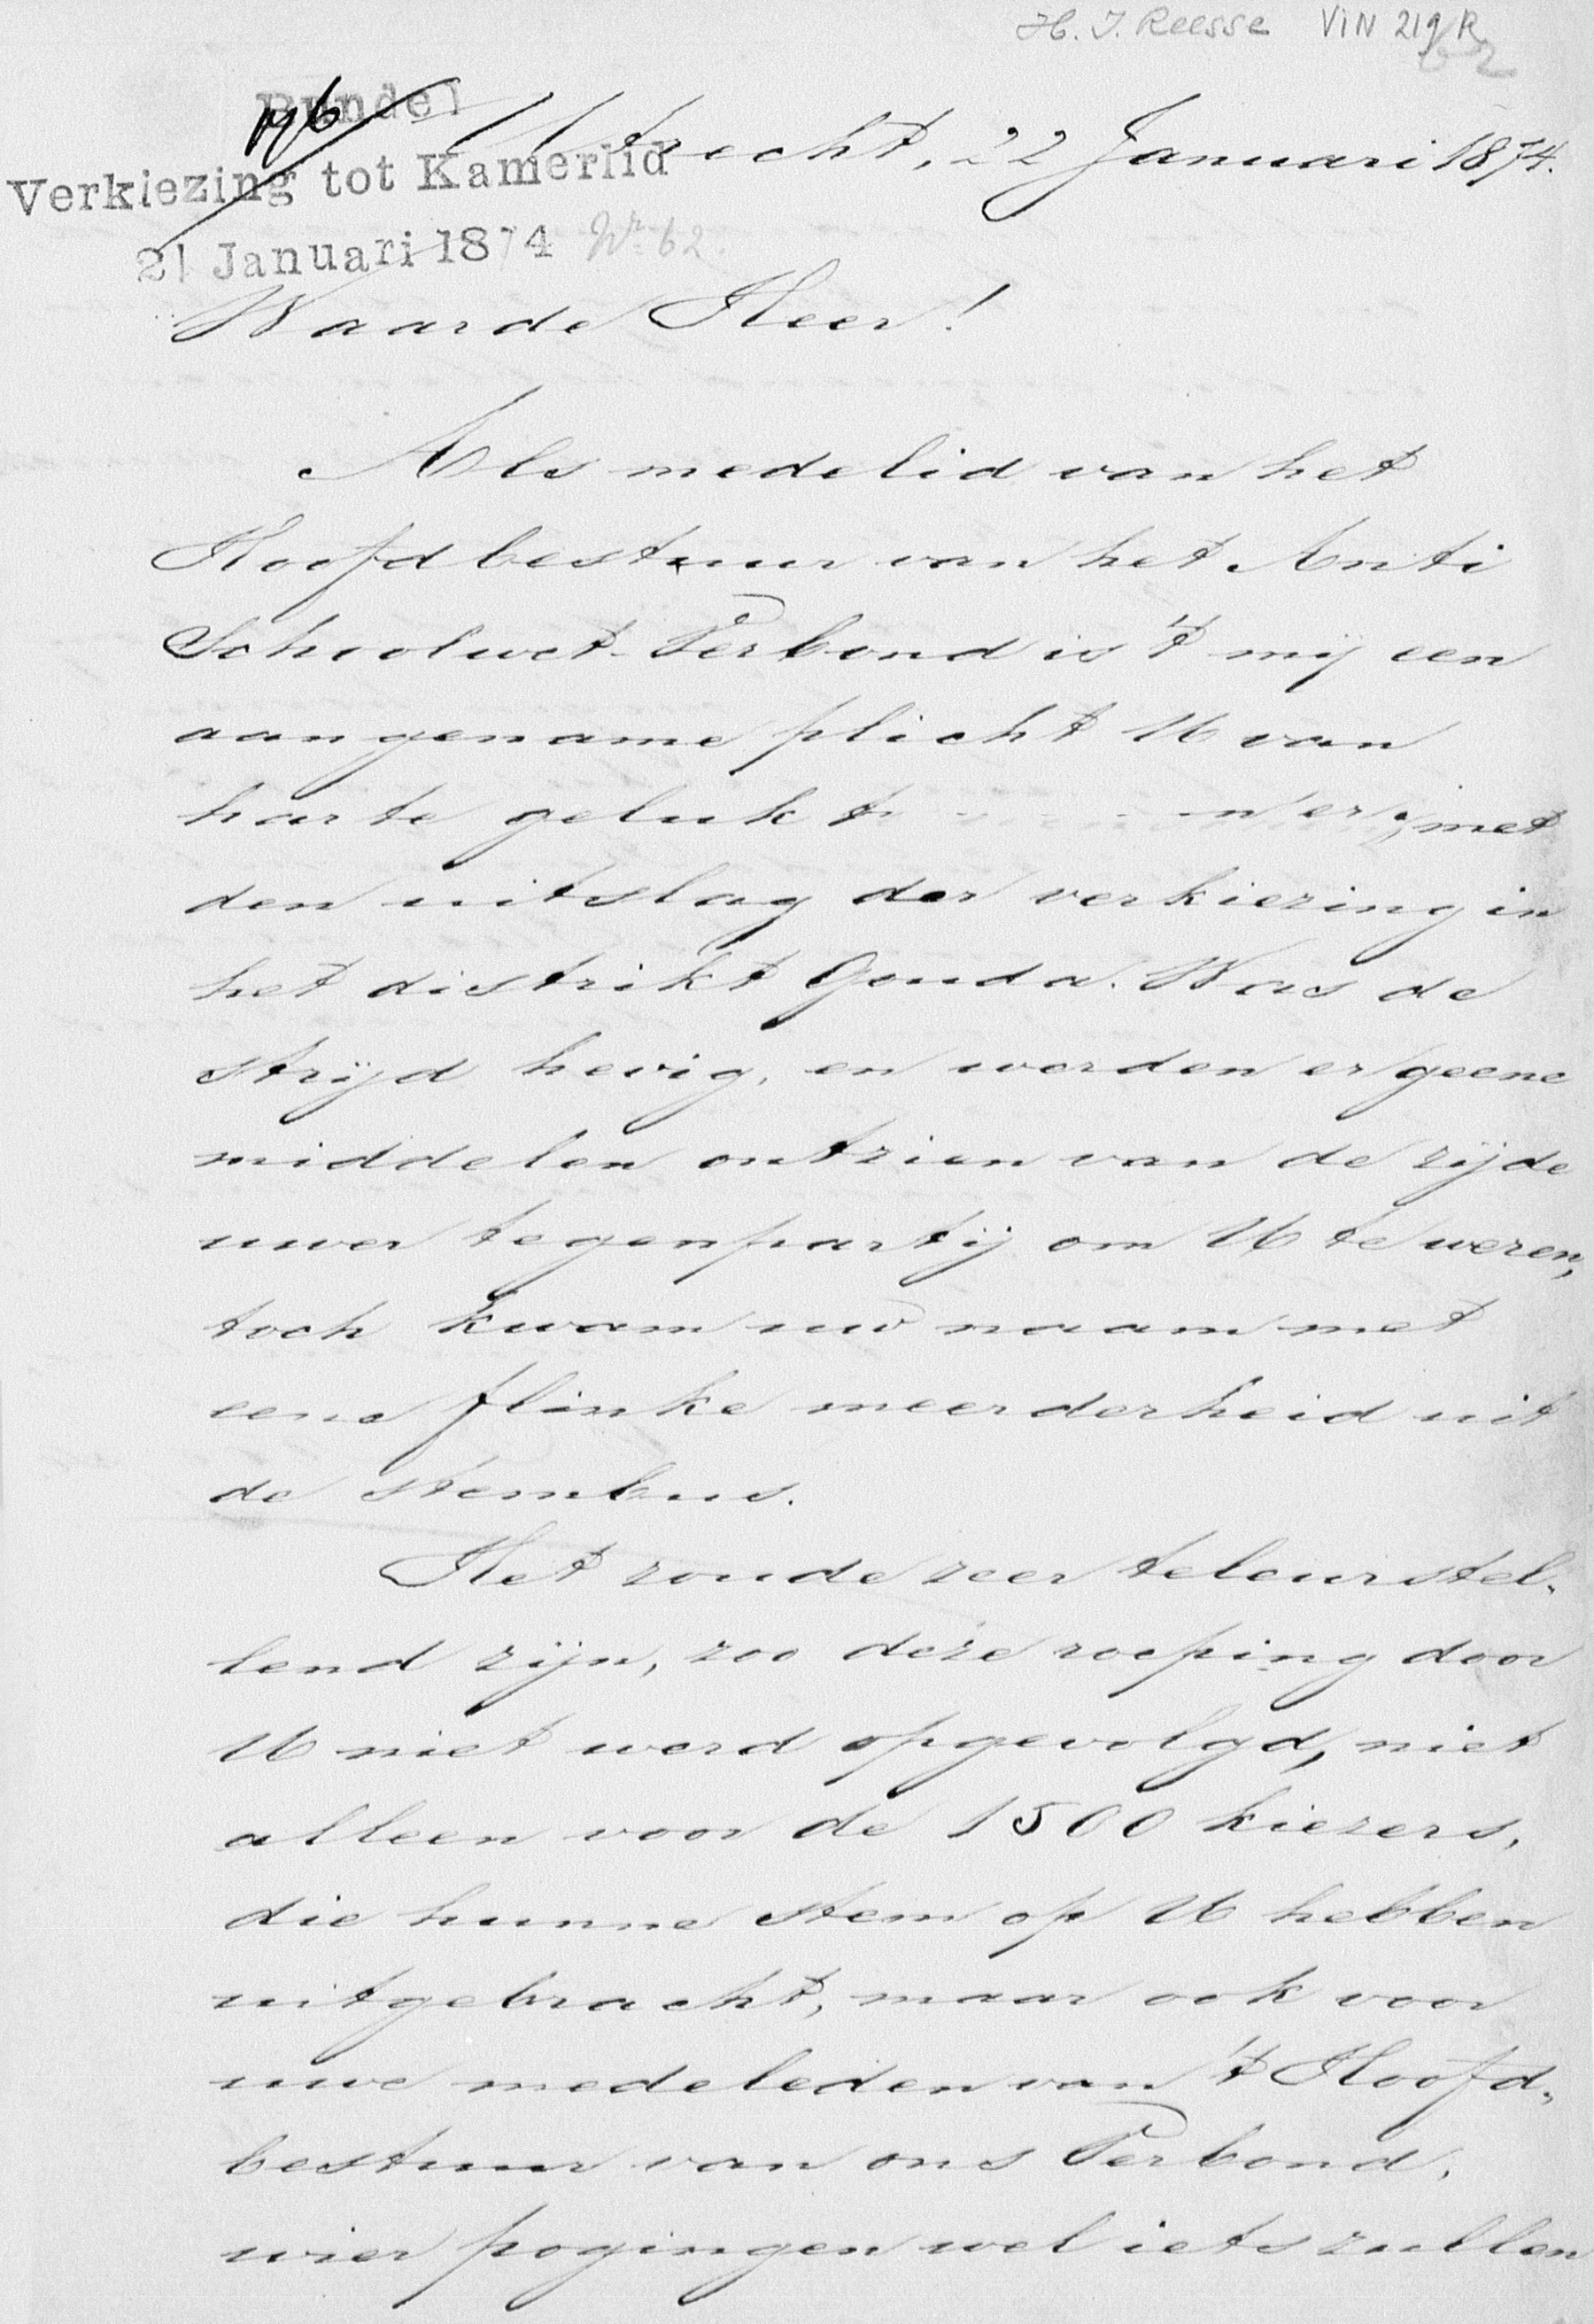 H. J. Reesse VIN 219 R
62
Bundel
Utrecht, 22 Januari 1874.
Verkiezing tot Kamerlid
21 Januari 1874 Nr. 62.
Waarde Heer!
Als medelid van het
Hoofdbestuur van het Anti
Schoolwet-Verbond is 't mij een
aangename plicht U van
harte geluk te met
den uitslag der verkiezing in
het distrikt Gouda. Was de
strijd hevig, en werden er geene
middelen ontzien van de zijde
uwer tegenpartij om U te weren,
toch kwam uw naam met
eene flinke meerderheid uit
de stembus.
Het zoude zeer teleurstel-
lend zijn, zoo deze roeping door
U niet werd opgevolgd, niet
alleen voor de 1500 kiezers,
die hunne stem op U hebben
uitgebracht, maar ook voor
uwe medeleden van 't Hoofd-
bestuur van ons Verbond,
wier pogingen wel iets zullen